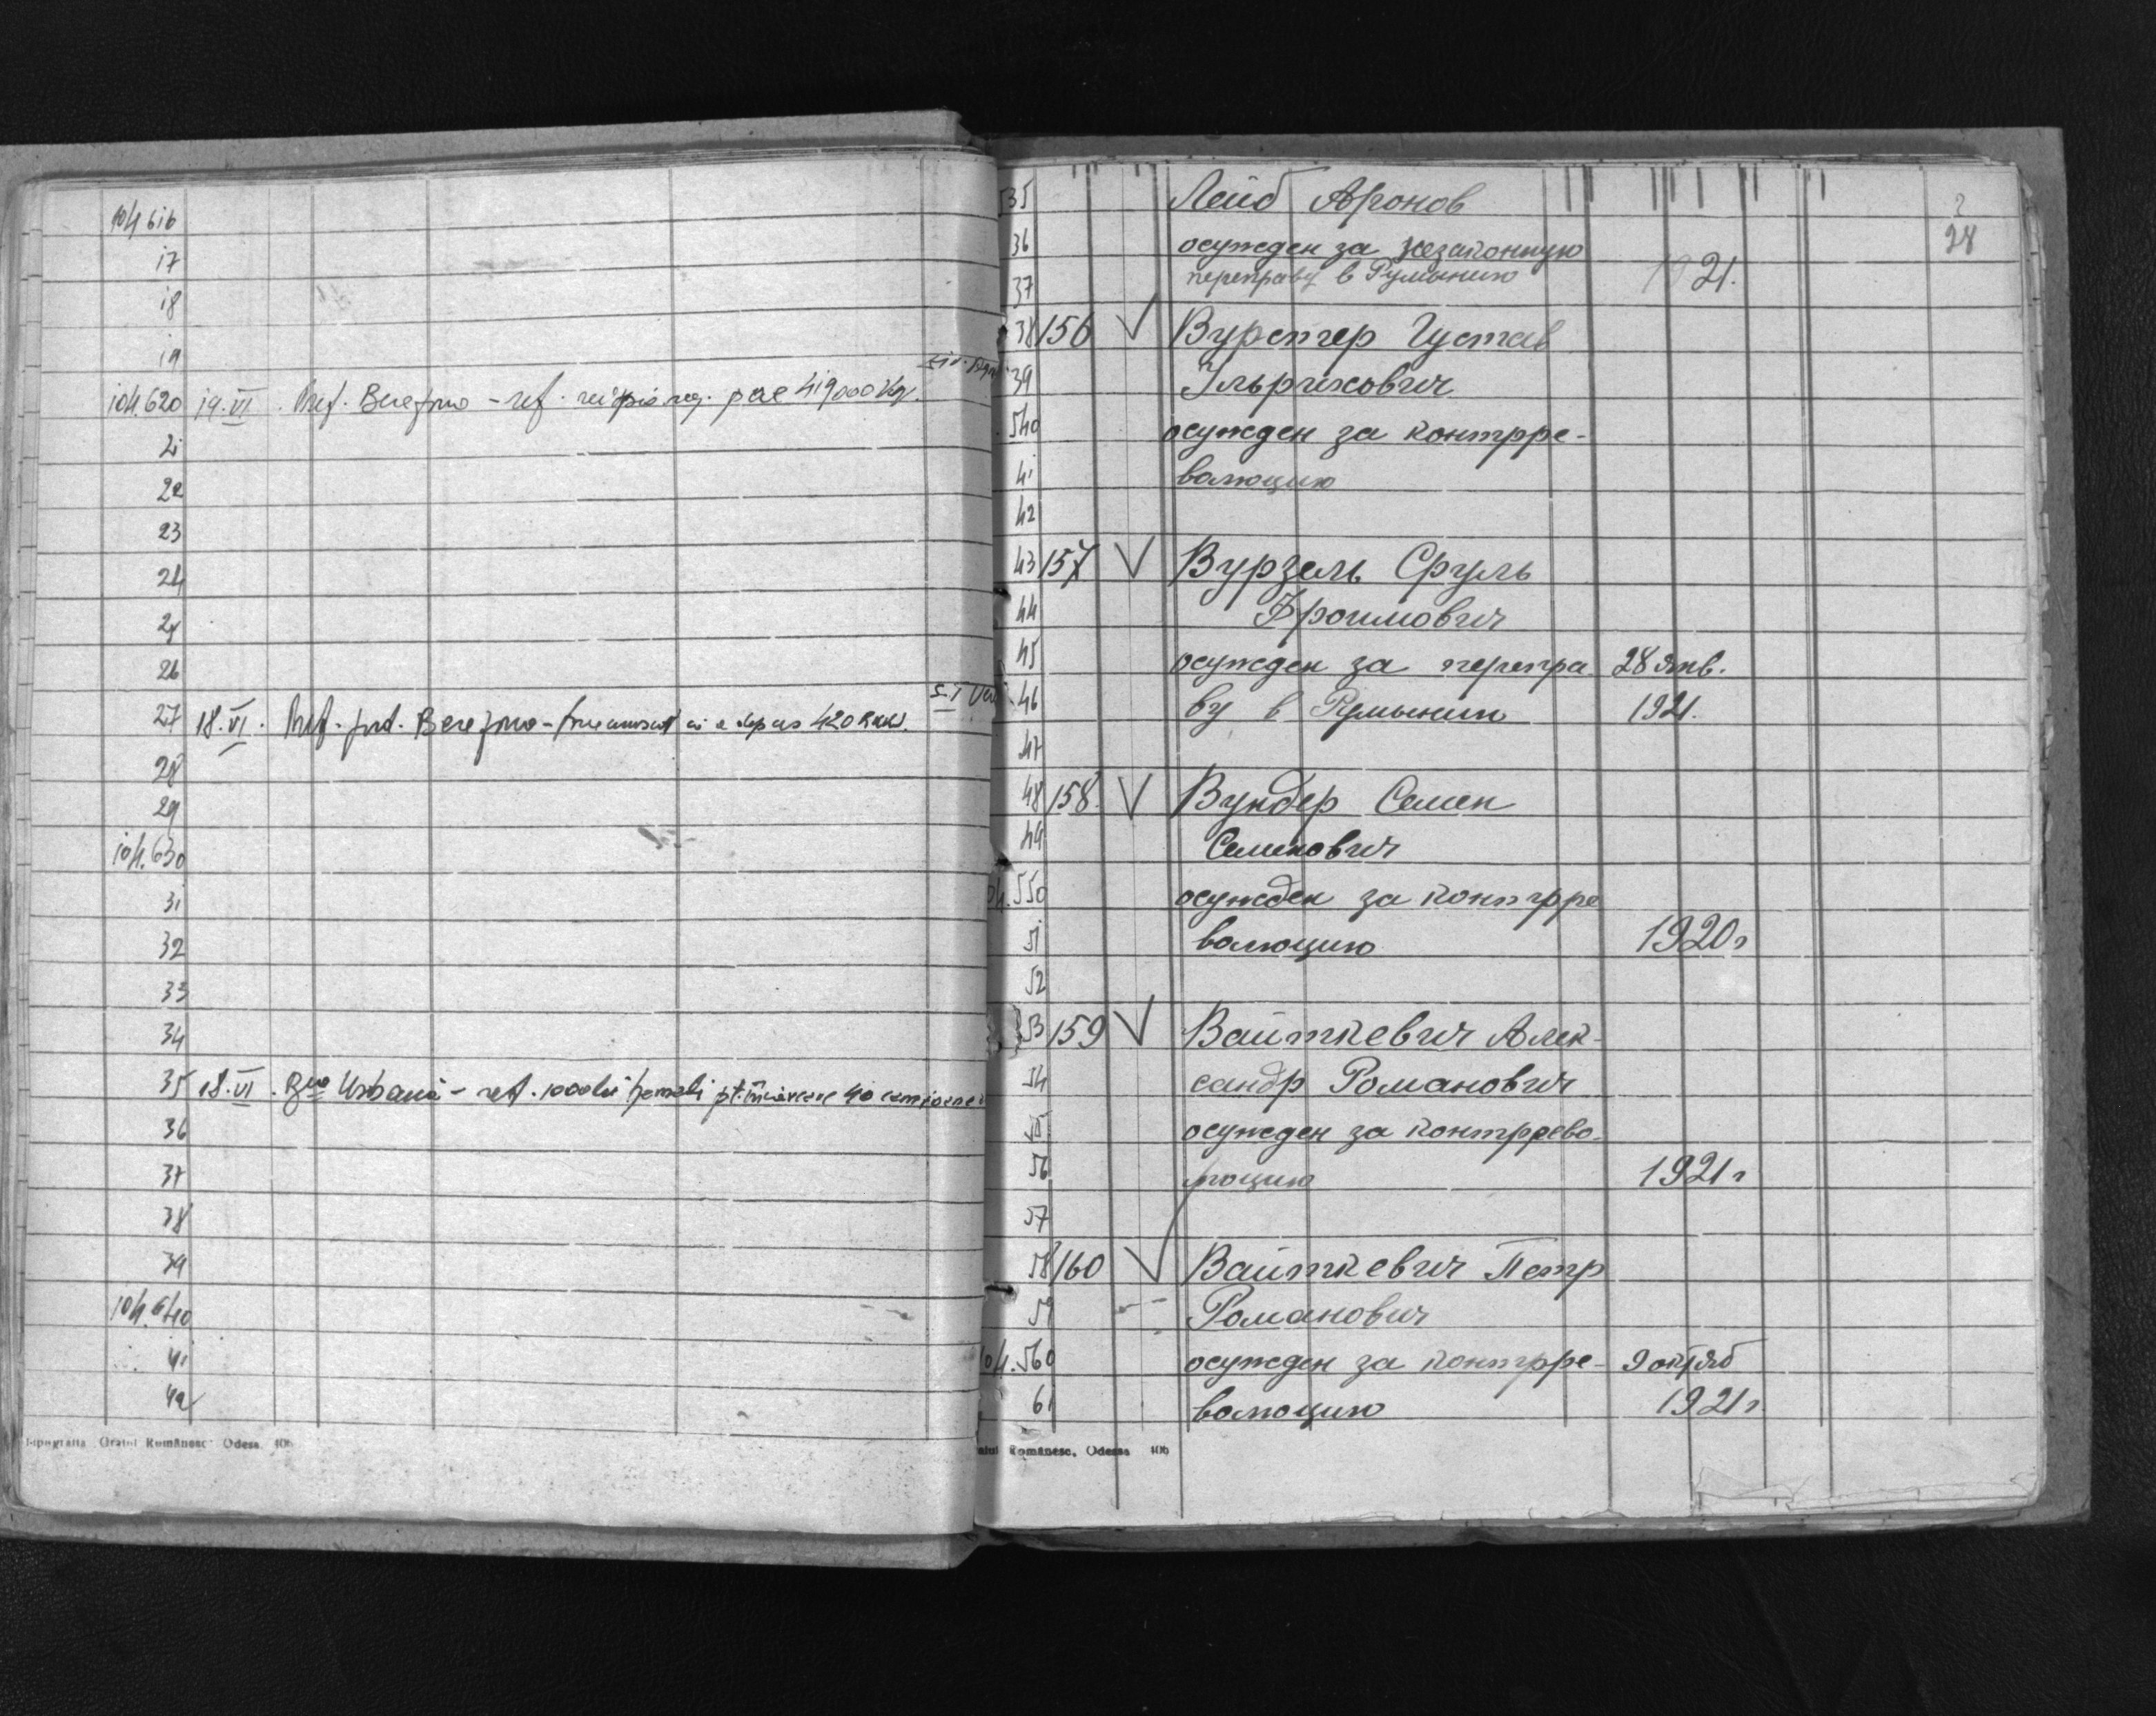 104 616
17
18
19
104.620 19.VI. Pref. Berezino - ref. 419000 kg.
21
22
23
24
25
26
27 18.VI. Pref. jud. Berezino - a depus 420
28
29
104.630
31
32
33
34
35 18.VI. Urbană - ref. 1000 lei 40
36
37
38
39
104.640
41
42
Tipografia „Graiul Românesc“ Odesa. 406
535 Лейб Аронов
28
36 осужден за незаконную
37 переправу в Румынию 1921.
38 156 V Вурстер Густав
39 Ульрихович
540 осужден за контрре-
41 волюцию
42
43 157 V Вурзель Сруль
44 Фроимович
45 осужден за перепра- 28 янв.
46 ву в Румынию 1921.
47
48 158. V Вундер Семен
49 Семенович
04.550 осужден за контрре
51 волюцию 1920г
52
53 159 V Вайткевич Алек-
54 сандр Романович
55 осужден за контррево-
56 люцию 1921г
57
58 160 V Вайткевич Петр
59 Романович
104.560 осужден за контрре- 9 октяб
61 волюцию 1921г.
Românesc. Odessa 406